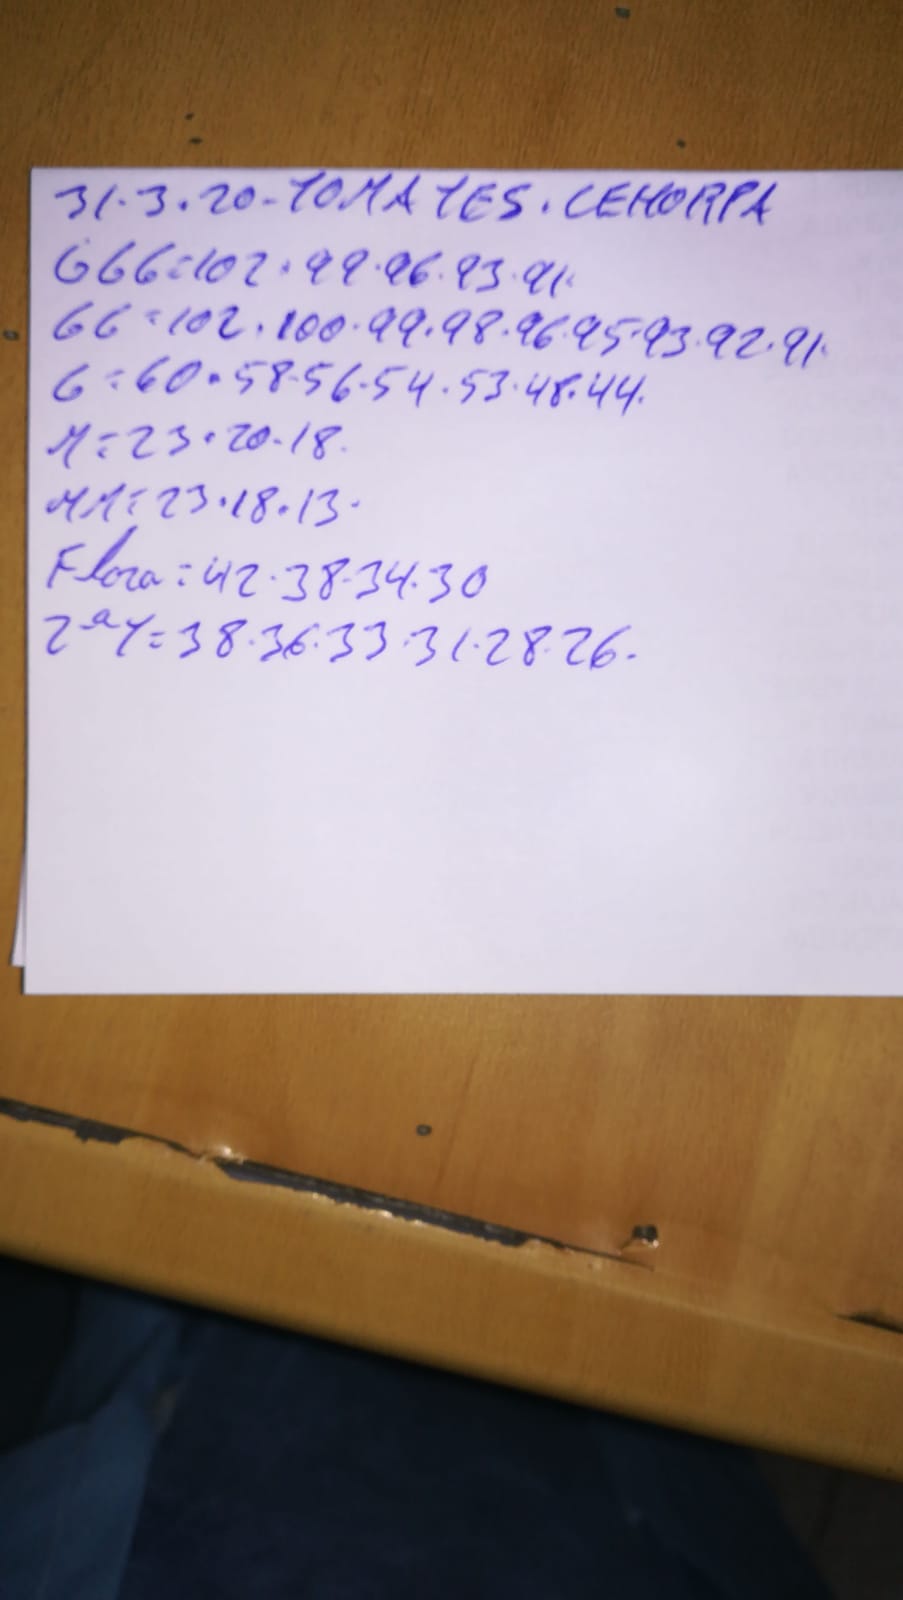 31.3.20-TOMATES.CEHORPA
GGG=102.99.96.93.91.
GG=102.100.99.98.96.95.93.92.91.
G=60.58.56.54.53.48.44.
M=23.20.18.
MM=23.18.13.
Flora=42.38.34.30
2ªT=38.36.33.31.28.26.